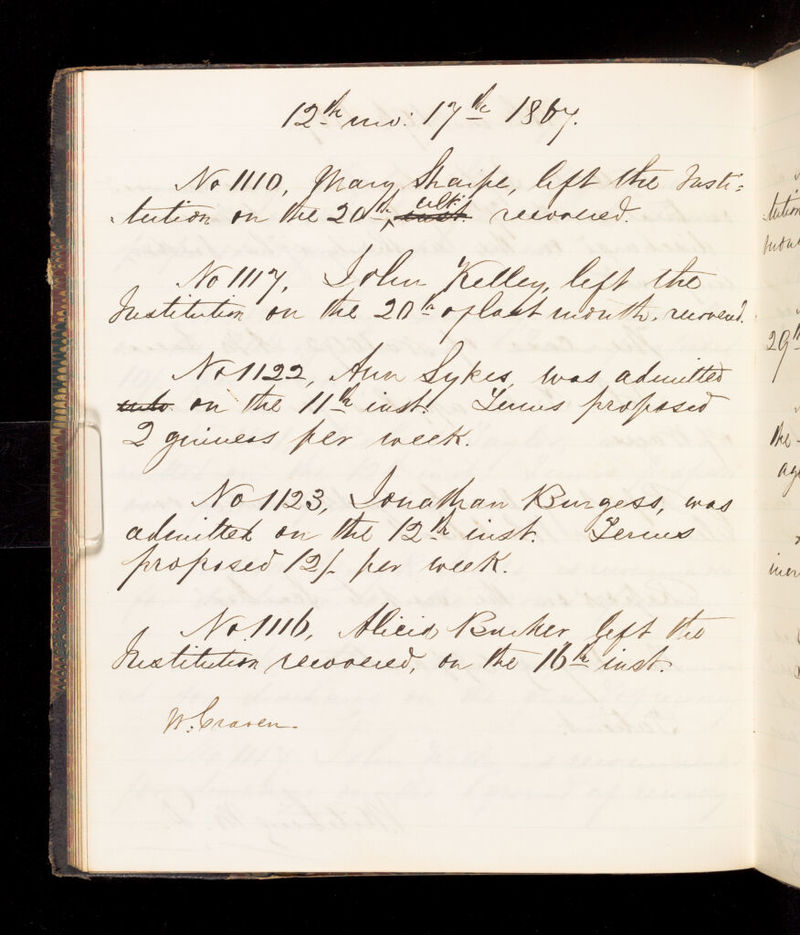 12th mo: 17th 1867.
No 1110, Mary Sharpe, left the Insti=
tution on the 20th ult: inst. recovered.
No 1117, John Kelley, left the
Institution on the 20th of last month, recovered.
No 1122, Ann Sykes, was admitted
into on the 11th inst. Terms proposed
2 guineas per week.
No 1123, Jonathan Burgess, was
admitted on the 12th inst. Terms
proposed 12/- per week.
No. 1116, Alicia Barker, left the
Institution recovered, on the 16th inst.
W. Craven.
tution
29th
the